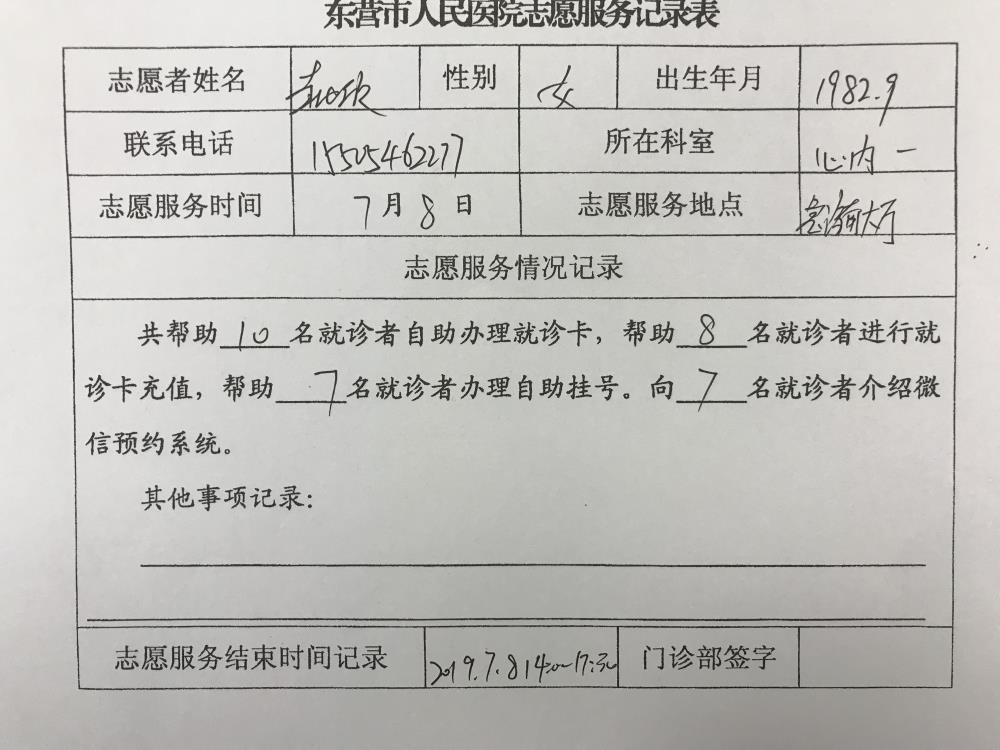 东营市人民医院志愿服务记录表
志愿者姓名 性别 女 出生年月 1982.9
联系电话 15505462277 所在科室 心内一
志愿服务时间 7月8日 志愿服务地点 大厅
志愿服务情况记录
共帮助10名就诊者自助办理就诊卡，帮助8名就诊者进行就
诊卡充值，帮助7名就诊者办理自助挂号。向7名就诊者介绍微
信预约系统。
其他事项记录：
志愿服务结束时间记录 2019.7.8 14:00-17:00 门诊部签字